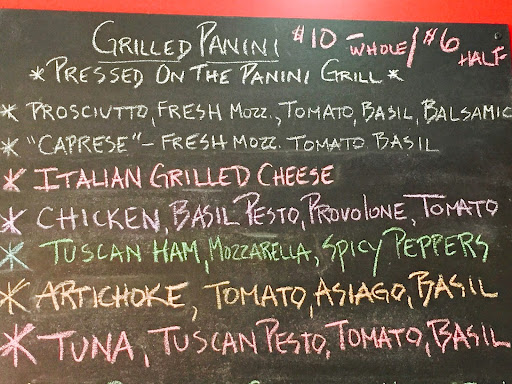 GRILLED PANINI $10 - WHOLE / $6 HALF
* PRESSED ON THE PANINI GRILL *
* PROSCIUTTO, FRESH MOZZ., TOMATO, BASIL, BALSAMIC
* "CAPRESE" - FRESH MOZZ. TOMATO BASIL
* ITALIAN GRILLED CHEESE
* CHICKEN, BASIL PESTO, PROVOLONE, TOMATO
* TUSCAN HAM, MOZZARELLA, SPICY PEPPERS
* ARTICHOKE, TOMATO, ASIAGO, BASIL
* TUNA, TUSCAN PESTO, TOMATO, BASIL